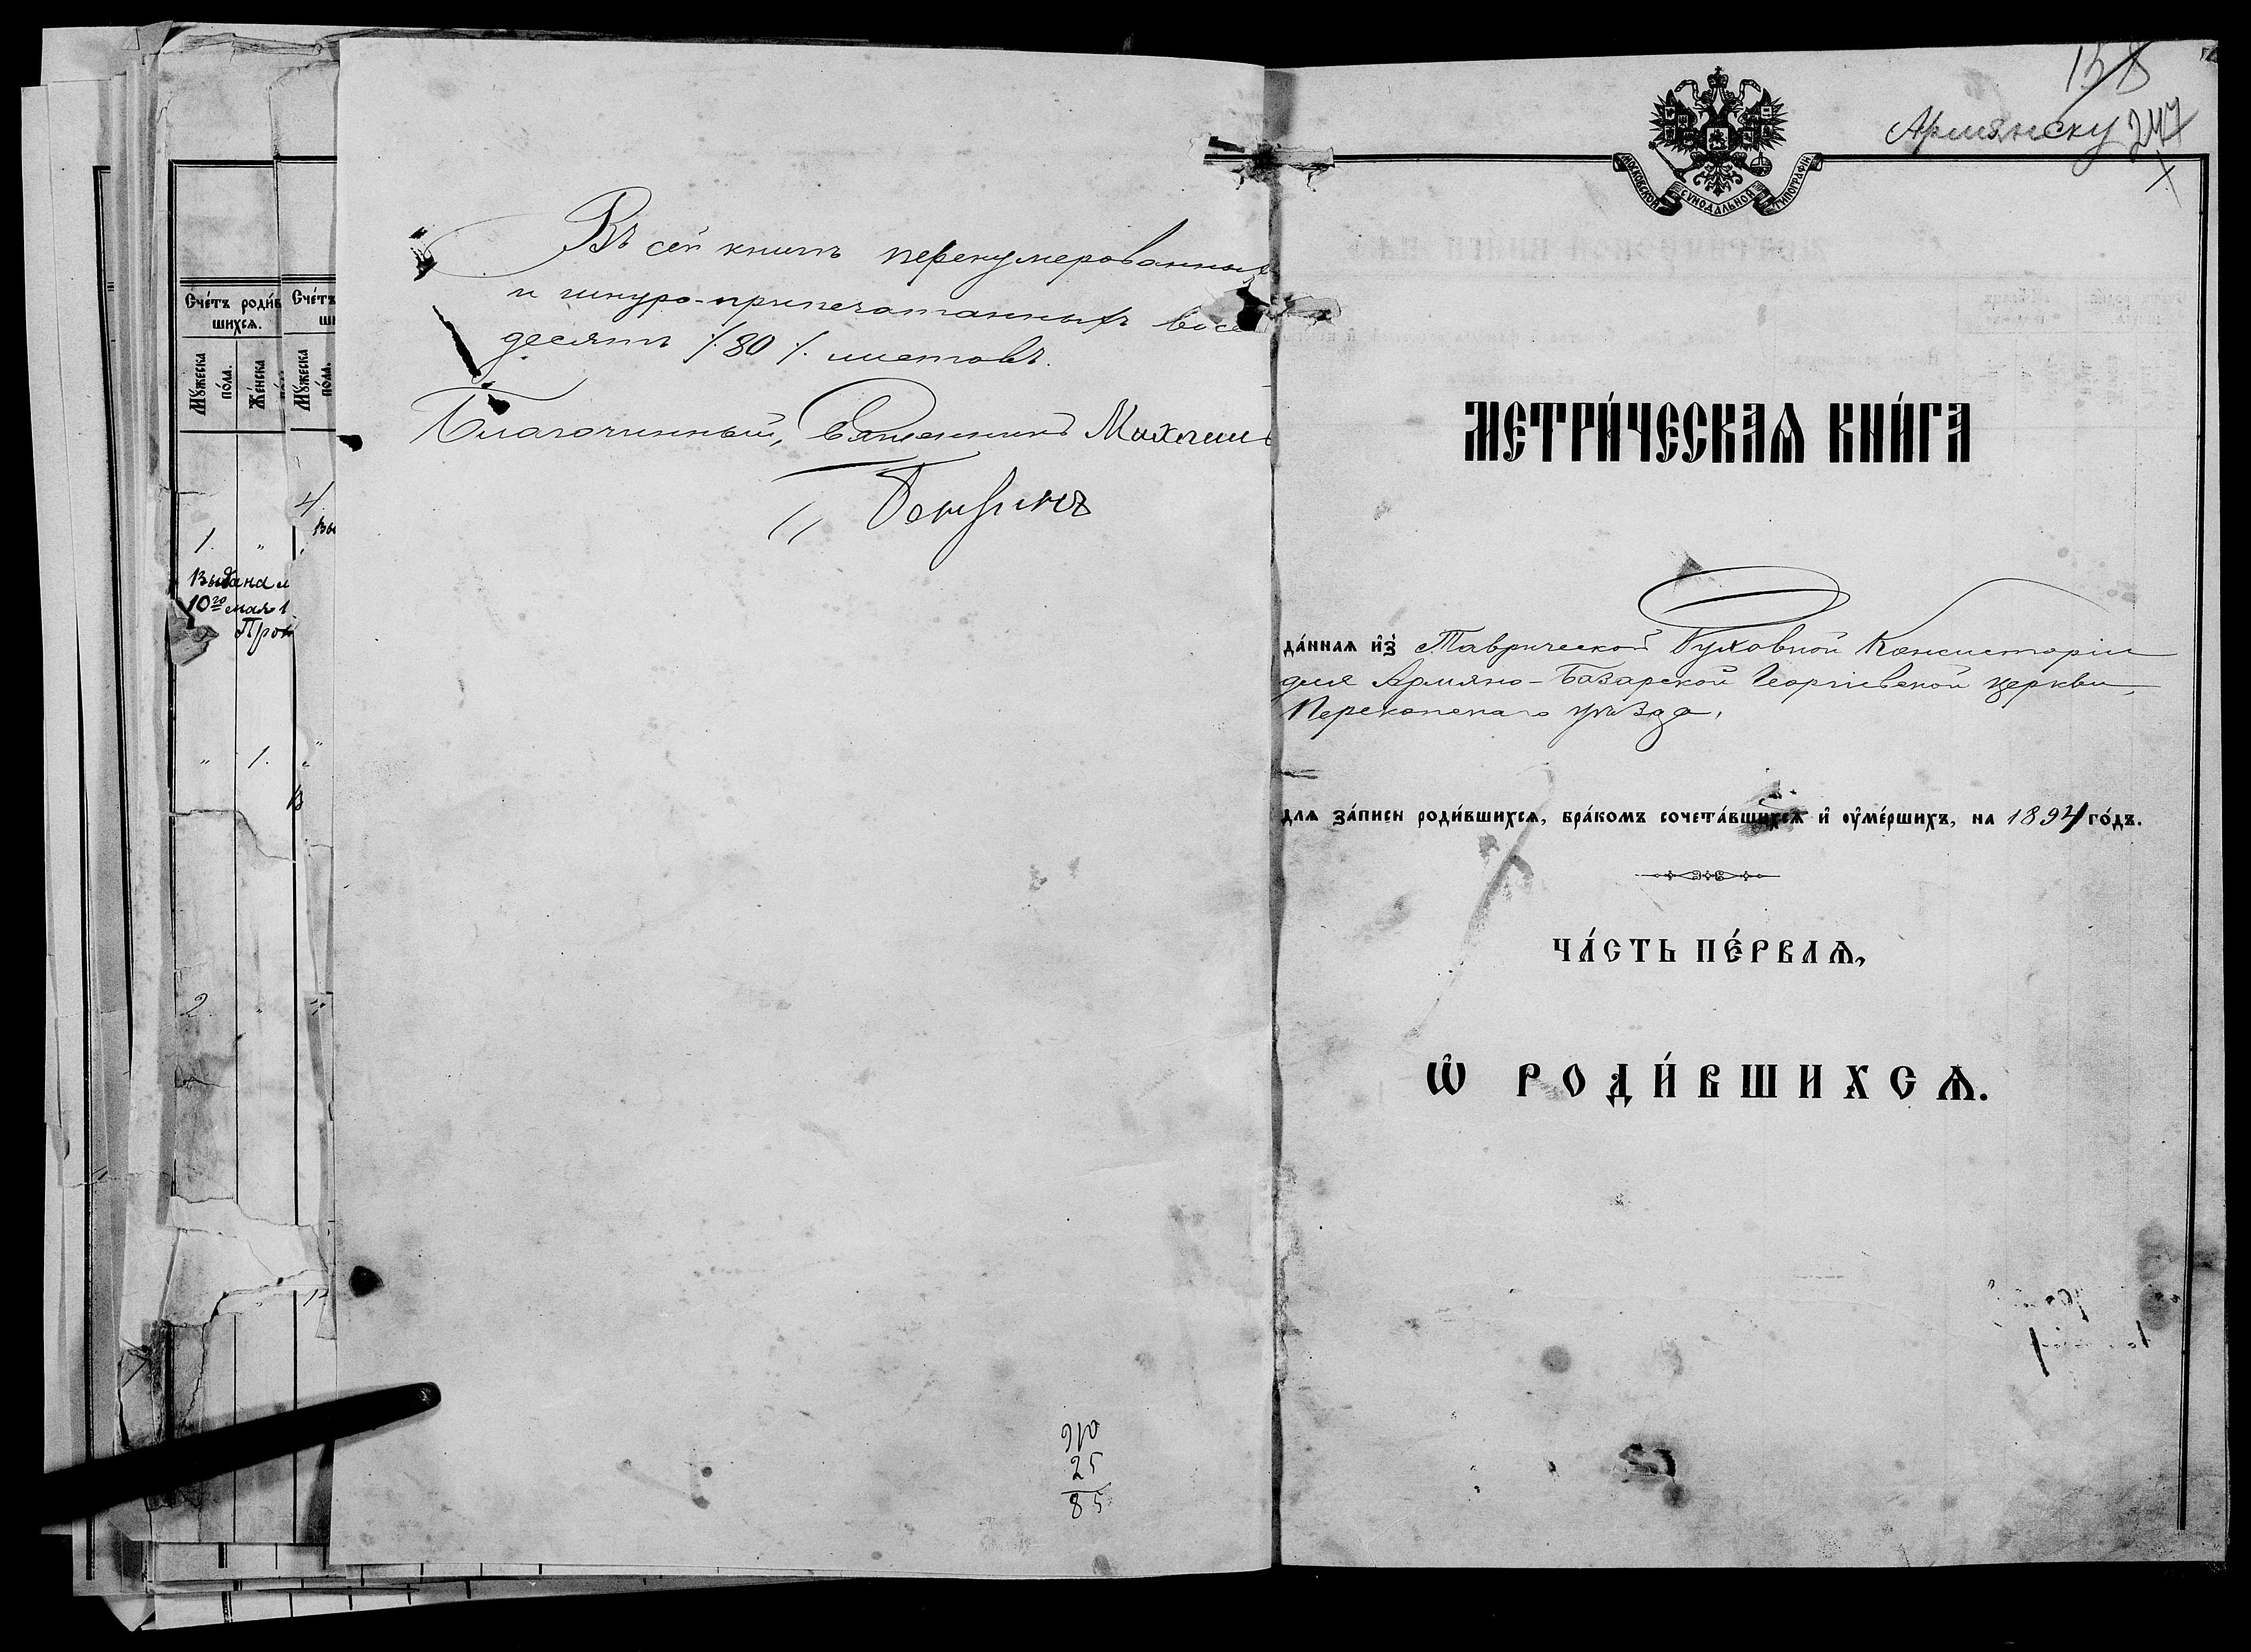 Счéтъ роди́в
шихся.
Мꙋ́жеска
по́ла.
Жéнска
Счéтъ
Мꙋ́жеска
по́ла.
1.
Выдана
10го мая
1.
2
4
Въ сей книгѣ перенумерованныхъ
и шнуро-припечатанныхъ восе
десятъ /.80./ листовъ.
Благочинный, Священникъ Михаилъ
910
25
85
Армянску 247
МОСКОВСКОЙ СѴНОДАЛЬНОЙ ТИПОГРАФІИ
МЕТРИ́ЧЕСКАѦ КНИ́ГА
дáннаѧ и҆зъ Таврической Духовной Консисторіи
для Армяно-Базарской Георгіевской церкви,
Перекопскаго уѣзда,
для зáписи роди́вшихсѧ, брáкомъ сочетáвшихсѧ и҆ ᲂу҆мéршихъ, на 1894 го́дъ.
ЧÁСТЬ ПÉРВАѦ,
Ѡ҆ РОДИ́ВШИХСѦ.